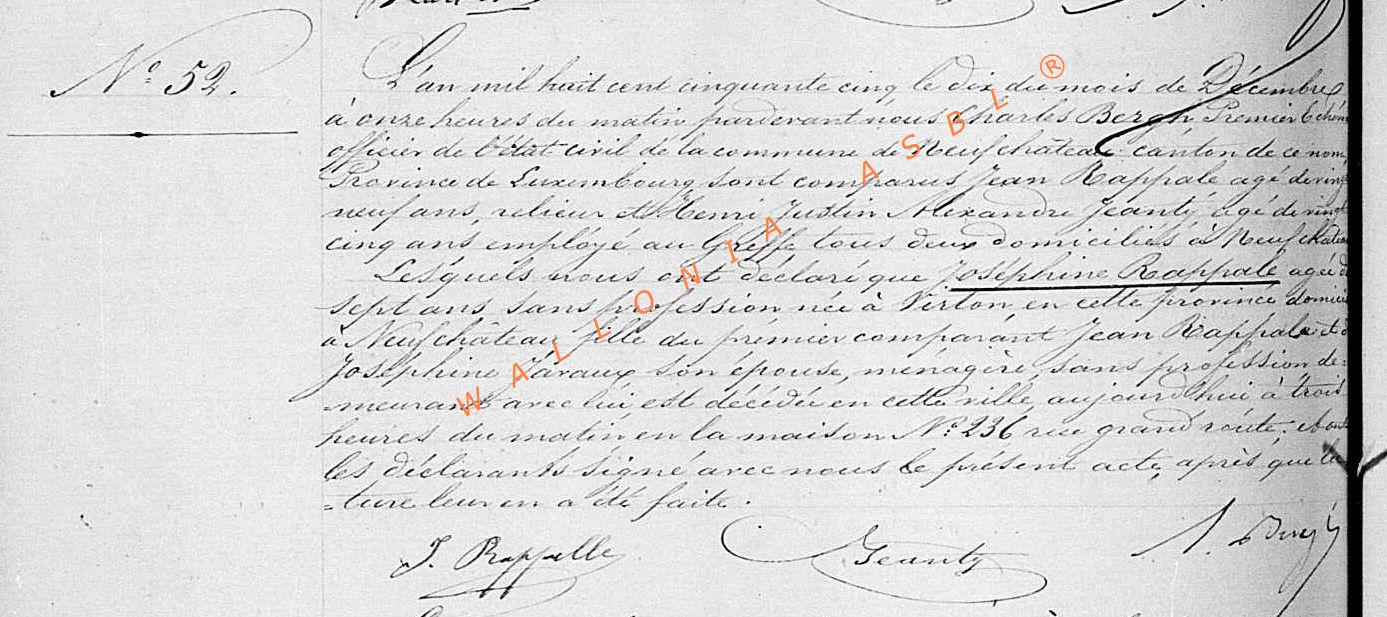 N° 52.
L'an mil huit cent cinquante cinq le dix du mois de Décembre
à onze heures du matin pardevant nous Charles Bergh Premier Echev
officier de l'état civil de la commune de Neufchâteau canton de ce nom,
Province de Luxembourg sont comparus Jean Rappale agé de vingt
neuf ans, relieur et Henri Justin Alexandre Jeanty agé de vingt
cinq ans employé au Greffe tous deux domiciliés à Neufchâteau
Lesquels nous ont déclaré que Joséphine Rappale agée de
sept ans, sans profession née à Virton, en cette province domici
à Neufchâteau fille du prémier comparant Jean Rappale et de
Joséphine Javaux son épouse, ménagère, sans profession de=
meurant avec lui, est décédée en cette ville aujourd'hui à trois
heures du matin en la maison N° 236 rue grand route. Et ont
les déclarants signé avec nous le présent acte, après que lec
=ture leur en a été faite.
J. Rappelle
Jeanty
WALLONIA ASBL ®